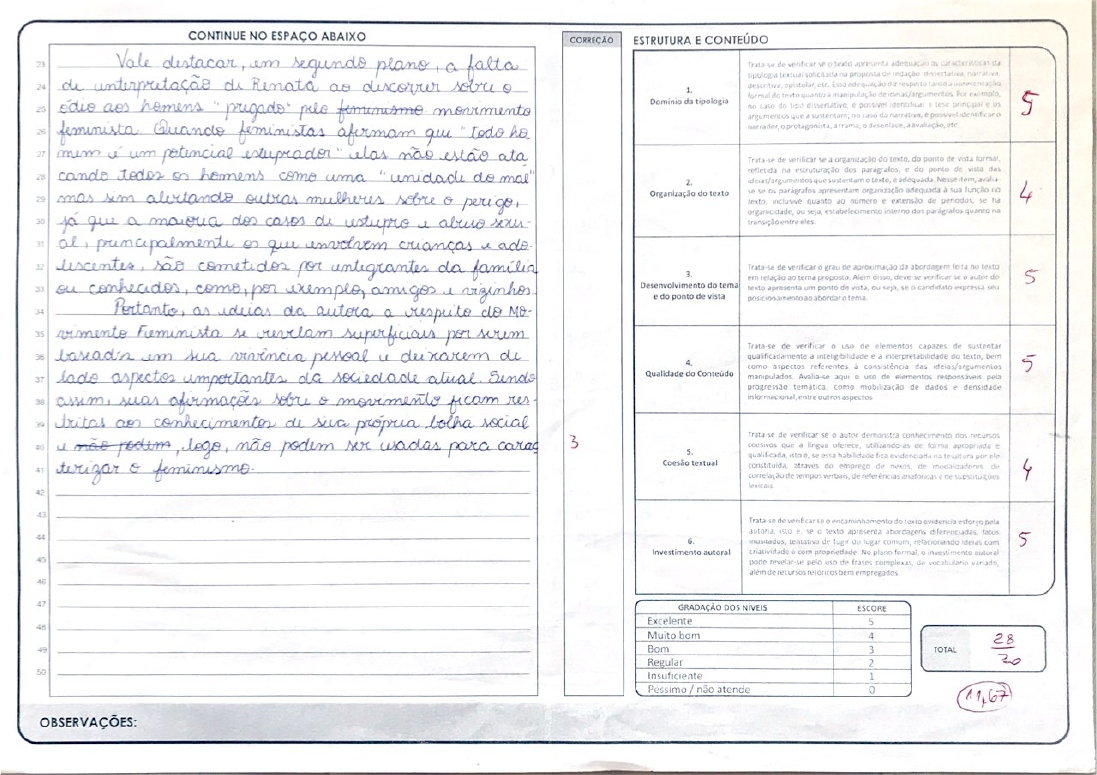 CONTINUE NO ESPAÇO ABAIXO
23 Vale destacar, em segundo plano, a falta
24 de interpretação de Renata ao discorrer sobre o
25 ódio aos homens "pregado" pelo feminismo movimento
26 feminista. Quando feministas afirmam que "todo ho
27 mem é um potencial estuprador" elas não estão ata
28 cando todos os homens como uma "unidade do mal"
29 mas sim alertando outras mulheres sobre o perigo,
30 já que a maioria dos casos de estupro e abuso sexu-
31 al, principalmente os que envolvem crianças e ado-
32 lescentes, são cometidos por integrantes da família
33 ou conhecidos, como, por exemplo, amigos e vizinhos.
34 Portanto, as ideias da autora a respeito do Mo-
35 vimento Feminista se revelam superficiais por serem
36 baseadas em sua vivência pessoal e deixarem de
37 lado aspectos importantes da sociedade atual. Sendo
38 assim, suas afirmações sobre o movimento ficam res-
39 tritas aos conhecimentos de sua própria bolha social
40 e não podem, logo, não podem ser usadas para carac
41 terizar o feminismo.
42
43
44
45
46
47
48
49
50
OBSERVAÇÕES:
CORREÇÃO
3
ESTRUTURA E CONTEÚDO
1.
Domínio da tipologia
Trata-se de verificar se o texto apresenta adequação às características da
tipologia textual solicitada na proposta de redação: dissertativa, narrativa,
descritiva, epistolar, etc. Essa adequação diz respeito tanto à apresentação
formal do texto quanto à manipulação de ideias/argumentos. Por exemplo,
no caso do tipo dissertativo, é possível identificar a tese principal e os
argumentos que a sustentam; no caso da narrativa, é possível identificar o
narrador, o protagonista, a trama, o desenlace, a avaliação, etc.
5
2.
Organização do texto
Trata-se de verificar se a organização do texto, do ponto de vista formal,
refletida na estruturação dos parágrafos, e do ponto de vista das
ideias/argumentos que sustentam o texto, é adequada. Nesse item, avalia-
se se os parágrafos apresentam organização adequada à sua função no
texto, inclusive quanto ao número e extensão de períodos; se há
organicidade, ou seja, estabelecimento interno dos parágrafos quanto na
transição entre eles.
4
3.
Desenvolvimento do tema
e do ponto de vista
Trata-se de verificar o grau de aproximação da abordagem feita no texto
em relação ao tema proposto. Além disso, deve se verificar se o autor do
texto apresenta um ponto de vista, ou seja, se o candidato expressa seu
posicionamento ao abordar o tema.
5
4.
Qualidade do Conteúdo
Trata-se de verificar o uso de elementos capazes de sustentar
qualificadamente a inteligibilidade e a interpretabilidade do texto, bem
como aspectos referentes à consistência das ideias/argumentos
manipulados. Avalia-se aqui o uso de elementos responsáveis pela
progressão temática, como mobilização de dados e densidade
informacional, entre outros aspectos
5
5.
Coesão textual
Trata-se de verificar se o autor demonstra conhecimento dos recursos
coesivos que a língua oferece, utilizando-os de forma apropriada e
qualificada, isto é, se essa habilidade fica evidenciada na tessitura por ele
constituída, através do emprego de nexos, de modalizadores, de
correlação de tempos verbais, de referências anafóricas e de substituições
lexicais.
4
6.
Investimento autoral
Trata-se de verificar se o encaminhamento do texto evidencia esforço pela
autoria, isto é, se o texto apresenta abordagens diferenciadas, fatos
inusitados, tentativa de fugir do lugar comum, relacionando ideias com
criatividade e com propriedade. No plano formal, o investimento autoral
pode revelar-se pelo uso de frases complexas, de vocabulário variado,
além de recursos retóricos bem empregados.
5
GRADAÇÃO DOS NÍVEIS ESCORE
Excelente 5
Muito bom 4
Bom 3
Regular 2
Insuficiente 1
Péssimo / não atende 0
TOTAL
28
30
11,67